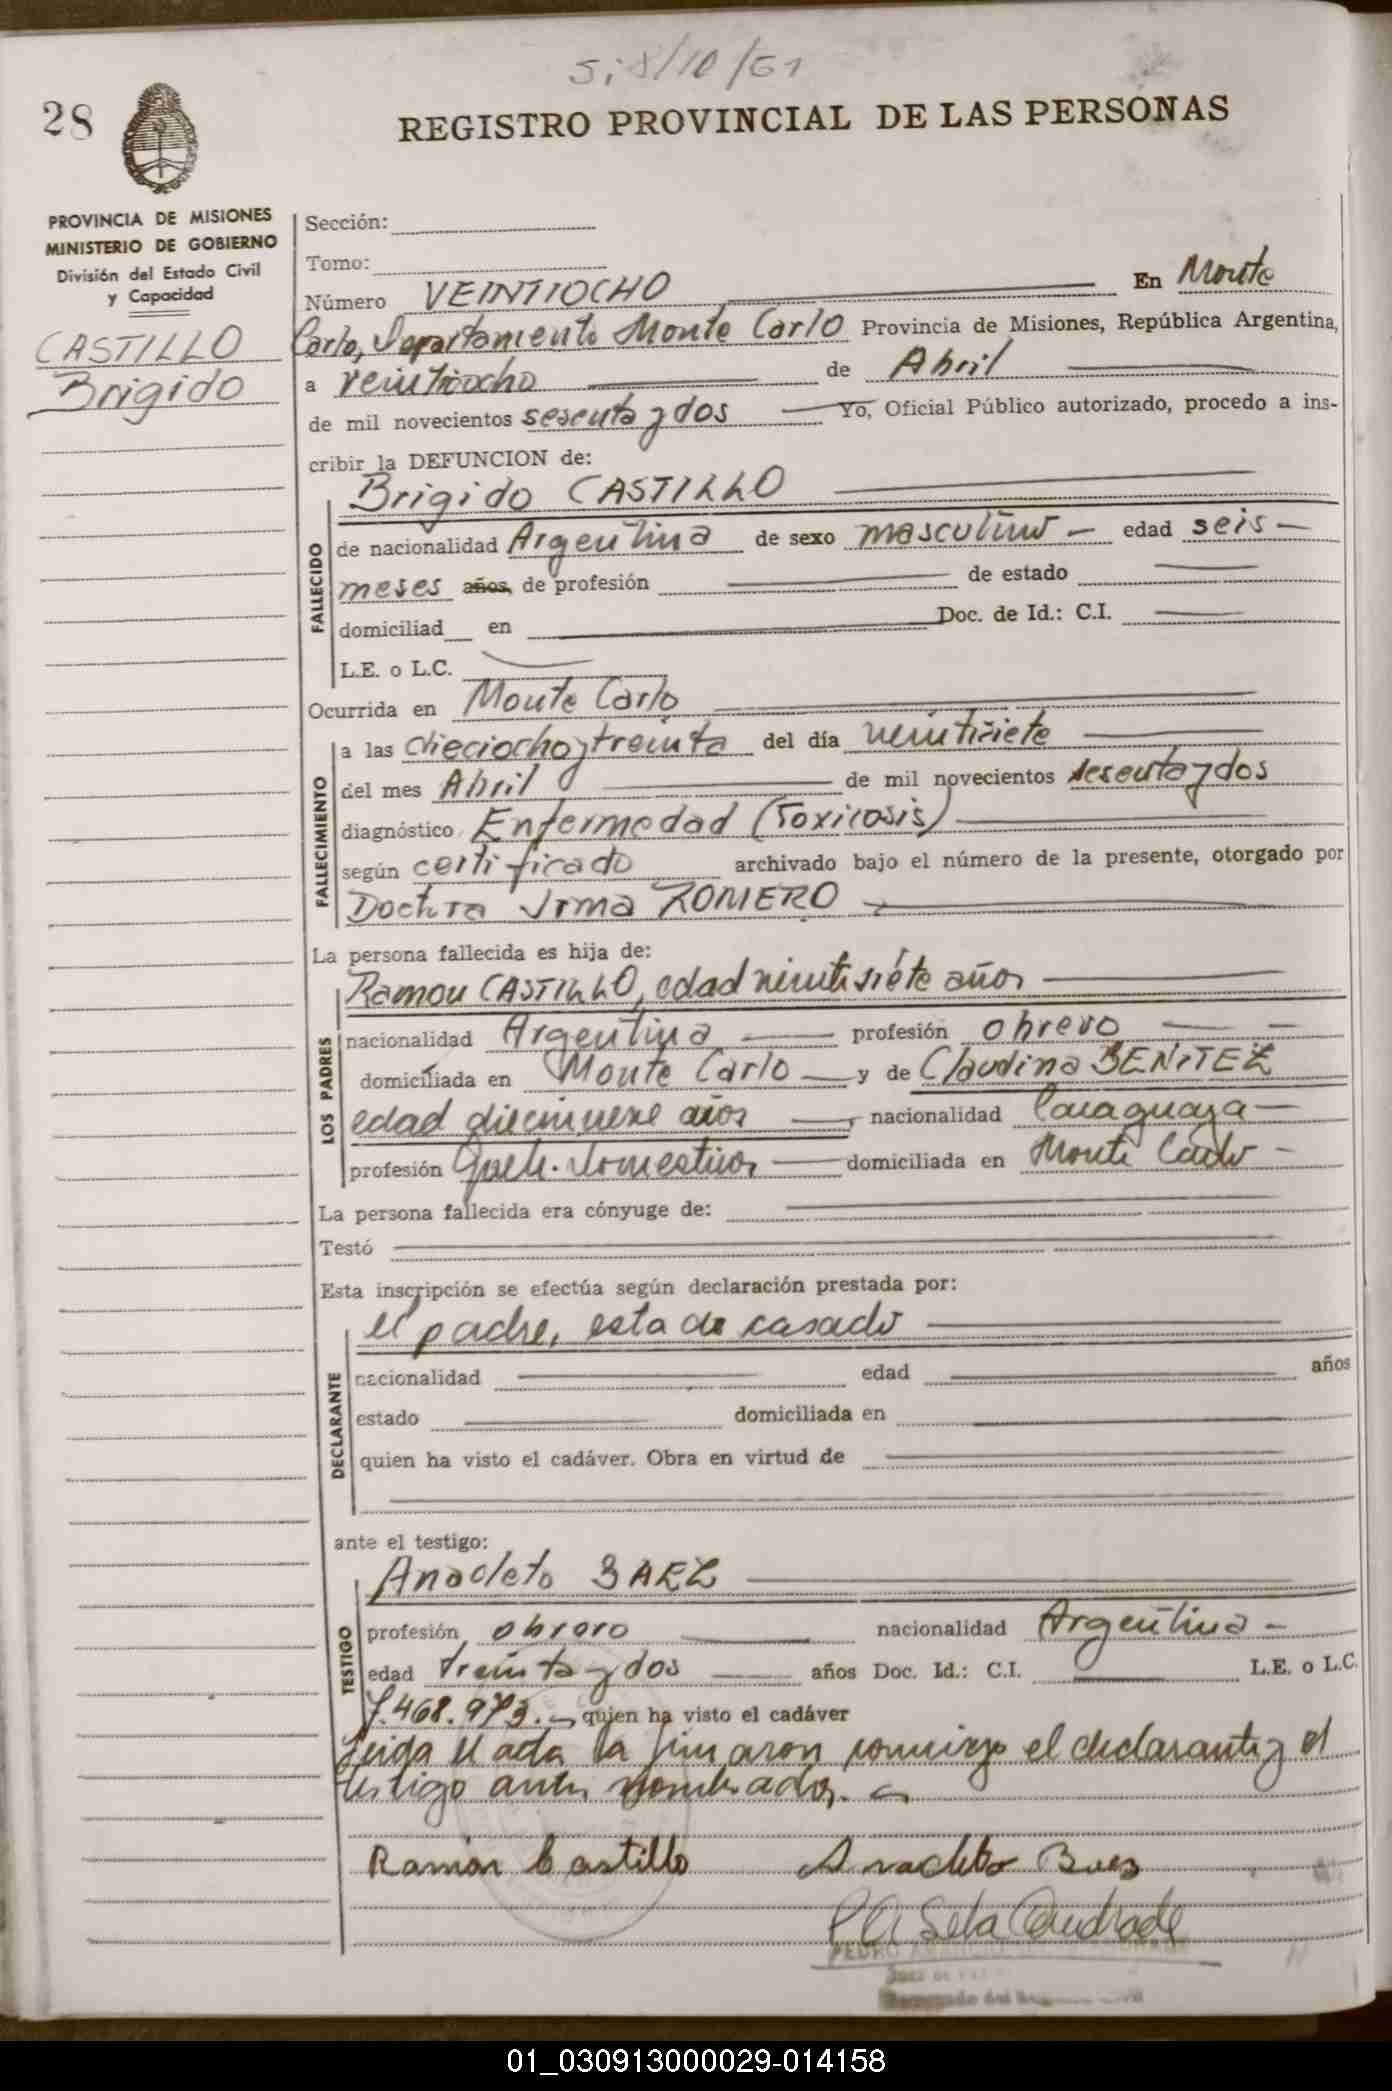 28
REGISTRO PROVINCIAL DE LAS PERSONAS
PROVINCIA DE MISIONES
MINISTERIO DE GOBIERNO
División del Estado Civil
y Capacidad
CASTILLO
Brigido
Sección:
Tomo:
Número VEINTIOCHO En Monte
Carlo, Departamento Monte Carlo Provincia de Misiones, República Argentina,
a veintiocho de Abril
de mil novecientos sesenta y dos Yo, Oficial Público autorizado, procedo a ins-
cribir la DEFUNCION de:
Brigido CASTILLO
FALLECIDO
de nacionalidad Argentina de sexo masculino edad seis
meses años, de profesión de estado
domiciliad en Doc. de Id.: C.I.
L.E. o L.C.
Ocurrida en Monte Carlo
FALLECIMIENTO
a las dieciocho y treinta del día veintisiete
del mes Abril de mil novecientos sesenta y dos
diagnóstico Enfermedad (Toxicosis)
según certificado archivado bajo el número de la presente, otorgado por
Doctora Irma ROMERO
La persona fallecida es hija de:
Ramon CASTILLO, edad veintisiete años
LOS PADRES
nacionalidad Argentina profesión obrero
domiciliada en Monte Carlo y de Claudina BENITEZ
edad diecinueve años, nacionalidad Paraguaya
profesión Queh. domesticos domiciliada en Monte Carlo
La persona fallecida era cónyuge de:
Testó
Esta inscripción se efectúa según declaración prestada por:
el padre, estado casado
DECLARANTE
nacionalidad edad años
estado domiciliada en
quien ha visto el cadáver. Obra en virtud de
ante el testigo:
Anacleto BAEZ
TESTIGO
profesión obrero nacionalidad Argentina
edad treinta y dos años Doc. Id.: C.I. L.E. o L.C.
7.468.973.- quien ha visto el cadáver
Leida el acta la firmaron conmigo el declarante y el
testigo antes nombrados.
Ramón Castillo Anacleto Baez
PEDRO
01_030913000029-014158